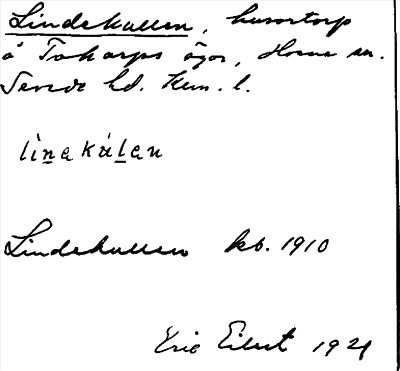 Lindekullen, husartorp
å Tokarps ägor, Horne sn.
Sevede hd. Kum. l.
lìnakúlan
Lindekullen kb. 1910
Eric Eilert 1921